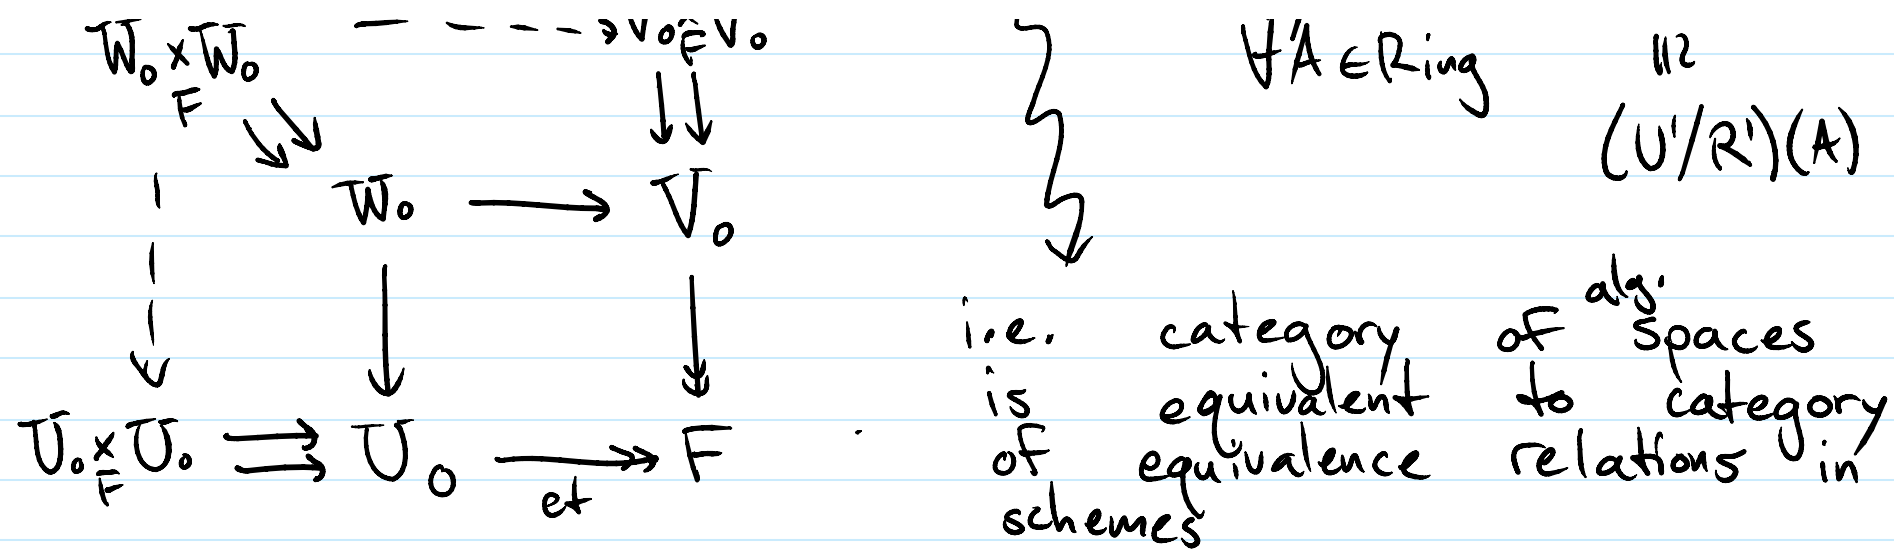 W₀ ×_F W₀ ⇢ V₀ ×_F V₀
W₀ → V₀
U₀ ×_F U₀ ⇉ U₀ ↠ F
et
∀A ∈ Ring
(U'/R')(A)
alg.
i.e. category of spaces
is equivalent to category
of equivalence relations in
schemes